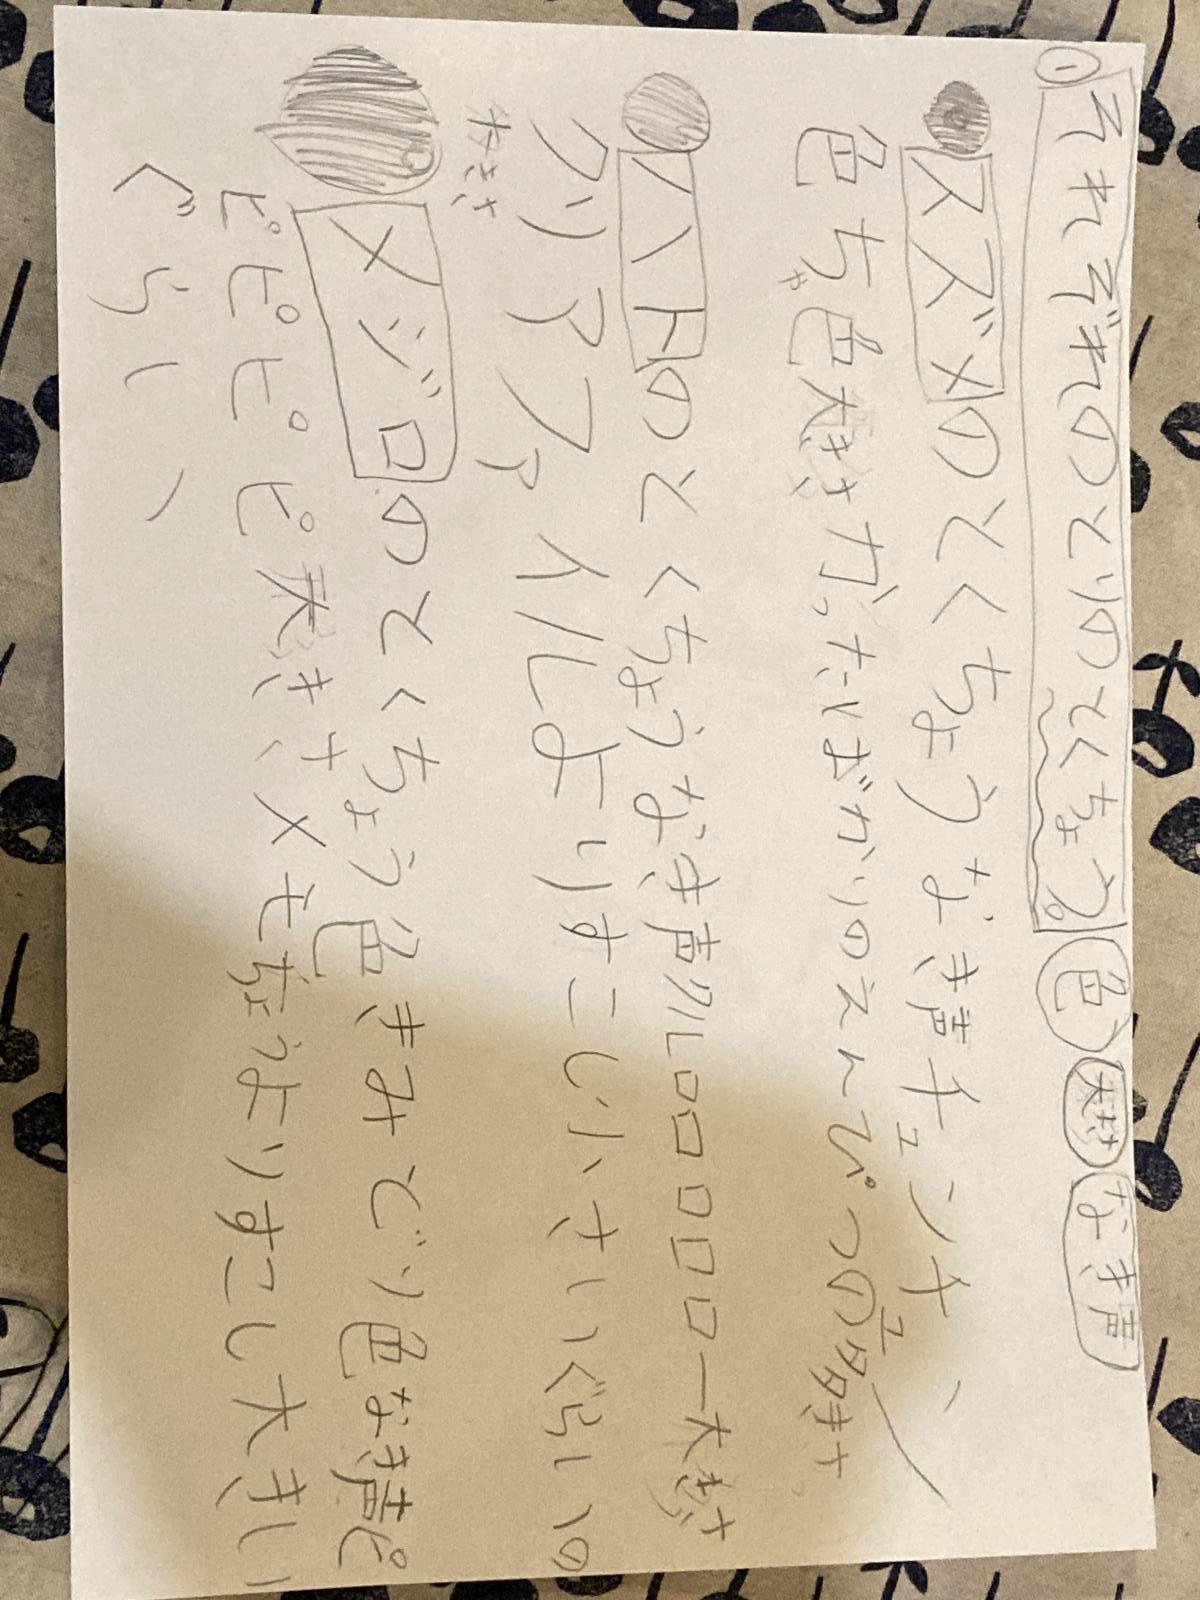 ① それぞれのとりのとくちょう。 色 大きさ なき声
スズメのとくちょう なき声チュンチュン、
色ちゃ色大きさ だったばかりのえんぴつの
ハトのとくちょうなき声クルロロロロロロー大きさ
クリアファイルよりすこし小さいぐらいの
大きさ
メジロのとくちょう色きみどり色なき声ピ
ピピピピ大きさスモモちょうよりすこし大きい
ぐらい、